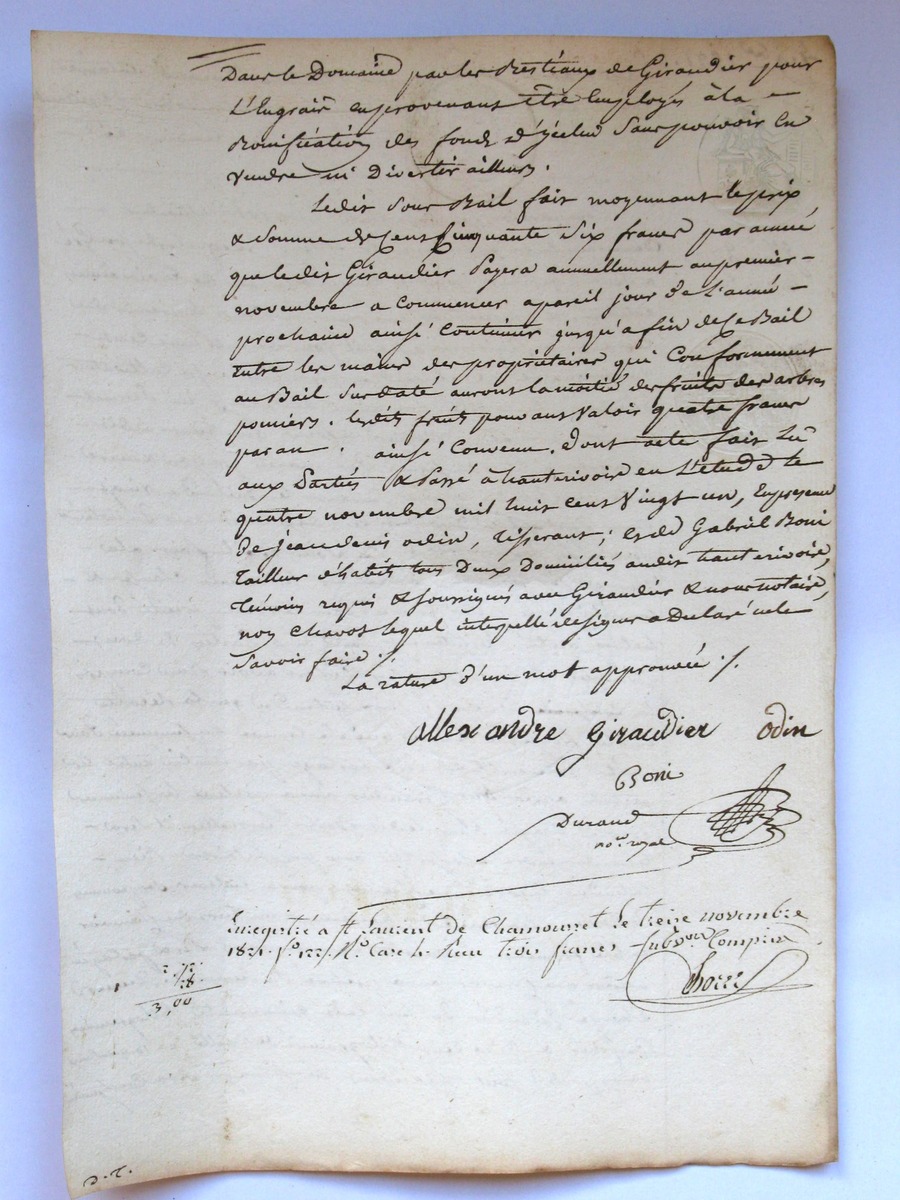 Dans le Domaine par les Bestiaux de Giraudier pour
L'Engrais en provenant être Employés à la
Bonification des fonds d'Jcelui Sans pouvoir En
Vendre ni Divertir ailleurs.
Ledit Sous Bail fait moyennant le prix
& Somme de Cent Cinquante Six francs par année
que ledit Giraudier Payera annuellement au premier
novembre a Commencer a pareil jour de L'année
prochaine ainsi Continuer jusqu'a fin de Ce Bail
Entre les mains des propriétaires qui Conformement
au Bail Susdaté auront la moitié des fruits des arbres
pomiers. lesdits fruits pouvant Valoir quatre francs
par an. ainsi Convenu. Dont acte fait Lû
aux Parties & Passé à hauterivoire en L'étude le
quatre novembre mil huit cent Vingt un, En presence
de Jean denis odin, Tisserant; et de Gabriel Boni
Tailleur d'habits tous Deux Domiciliés audit hauterivoire,
Témoins requis & soussignés avec Giraudier & nous notaire,
non Chavot lequel interpellé de signer a Declaré ne le
Savoir faire ./.
La rature d'un mot approuvée ./.
allexandre Giraudier odin
Boni
Durand
no.re royal
Enregistré a St Laurent de Chamousset le treize novembre
1821. f.o 122 Case Reçu trois francs Subv.on Comprise
3,00
D.T.